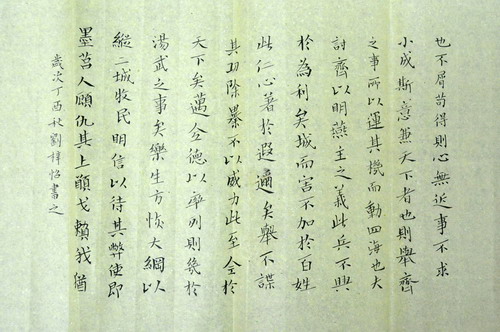 也不屑苟得則心無近事不求
小成斯意兼天下者也則舉齊
之事所以運其機而動四海也夫
討齊以明燕主之義此兵不興
於為利矣城而害不加於百姓
此仁心著於遐邇矣舉不謀
其功除暴不以威力此至全於
天下矣邁全德以率列則幾於
湯武之事矣樂生方恢大綱以
縱二城收民明信以待其弊使即
墨莒人顧仇其上願戈賴我猶
歲次丁酉秋劉怡書之